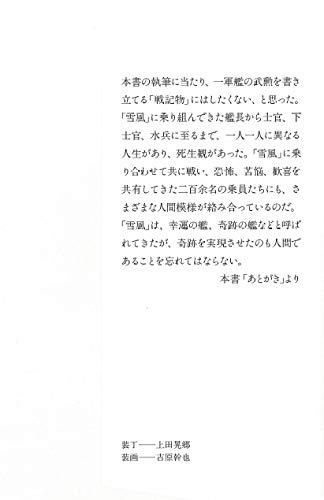 本書の執筆に当たり、一軍艦の武勲を書き
立てる「戦記物」にはしたくない、と思った。
「雪風」に乗り組んできた艦長から士官、下
士官、水兵に至るまで、一人一人に異なる
人生があり、死生観があった。「雪風」に乗
り合わせて共に戦い、恐怖、苦悩、歓喜を
共有してきた二百余名の乗員たちにも、さ
まざまな人間模様が絡み合っているのだ。
「雪風」は、幸運の艦、奇跡の艦などと呼ば
れてきたが、奇跡を実現させたのも人間で
あることを忘れてはならない。
本書「あとがき」より
装丁──上田晃郷
装画──古原幹也